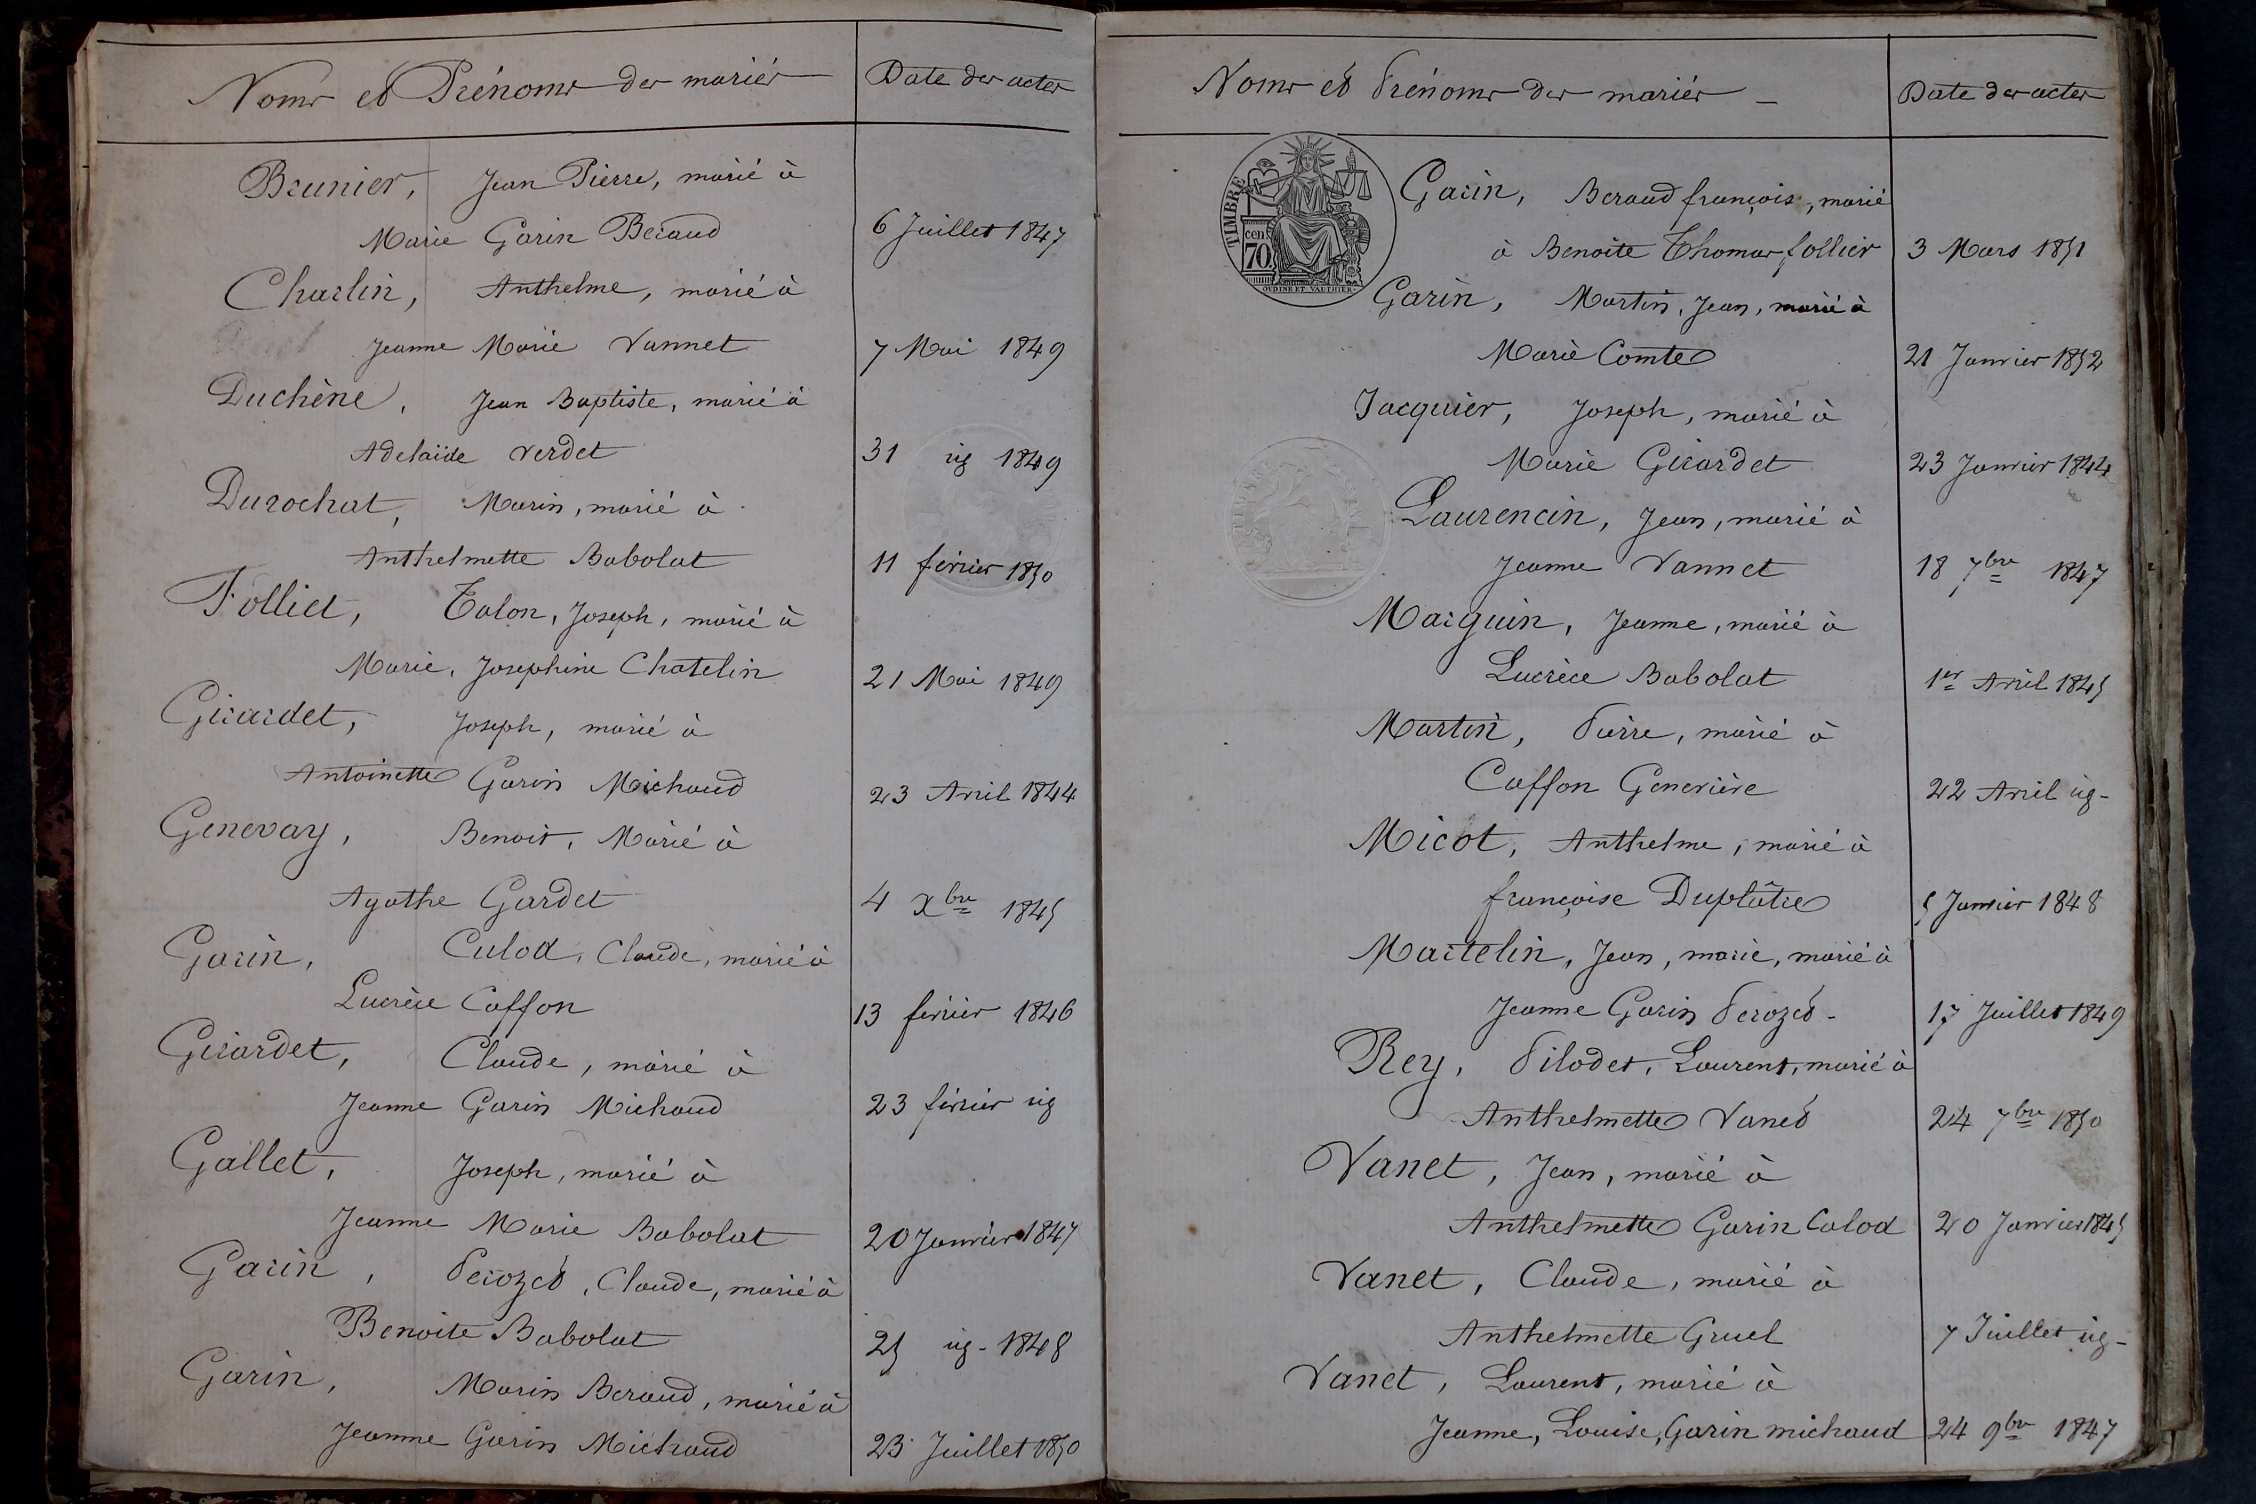 Noms et Prénoms des mariés
Date des actes
Brunier, Jean Pierre, marié à
Marie Garin Beraud
6 Juillet 1847
Charlin, Anthelme, marié à
Jeanne Marie Vannet
7 Mai 1849
Duchêne, Jean Baptiste, marié à
Adelaïde Verdet
31 id 1849
Durochat, Marin, marié à
Anthelmette Babolat
11 février 1850
Folliet, Talon, Joseph, marié à
Marie, Josephine Chatelin
21 Mai 1849
Girardet, Joseph, marié à
Antoinette Garin Michaud
23 Avril 1844
Genevay, Benoit, Marié à
Agathe Gardet
4 Xbre 1845
Garin, Culod, Claude, marié à
Lucrèce Caffon
13 février 1846
Girardet, Claude, marié à
Jeanne Garin Michaud
23 février id
Gallet, Joseph, marié à
Jeanne Marie Babolat
20 Janvier 1847
Garin, Perozet, Claude, marié à
Benoite Babolat
25 id - 1848
Garin, Marin Beraud, marié à
Jeanne Garin Michaud
23 Juillet 1850
Noms et Prénoms des mariés -
Date des actes
TIMBRE
cent
70.
OUDINE ET VAUTHIER
Garin, Beraud françois, marié
à Benoite Thomas follier
3 Mars 1851
Garin, Martin, Jean, marié à
Marie Comte
21 Janvier 1852
Jacquier, Joseph, marié à
Marie Girardet
23 Janvier 1844
Laurencin, Jean, marié à
Jeanne Vannet
18 7bre 1847
Marguin, Jeanne, marié à
Lucrèce Babolat
1er Avril 1845
Martin, Pierre, marié à
Caffon Geneviève
22 Avril id -
Micot, Anthelme, marié à
françoise Duplâtre
5 Janvier 1848
Martelin, Jean, marie, marié à
Jeanne Garin Perozet -
17 Juillet 1849
Rey, Pilodet, Laurent, marié à
Anthelmette Vanet
24 7bre 1850
Vanet, Jean, marié à
Anthelmette Garin Culod
20 Janvier 1845
Vanet, Claude, marié à
Anthelmette Gruel
7 Juillet id -
Vanet, Laurent, marié à
Jeanne, Louise, Garin michaud
24 9bre 1847